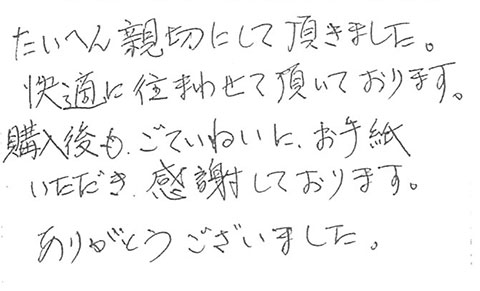 たいへん親切にして頂きました。
快適に住まわせて頂いております。
購入後も、ごていねいに、お手紙
いただき、感謝しております。
ありがとうございました。